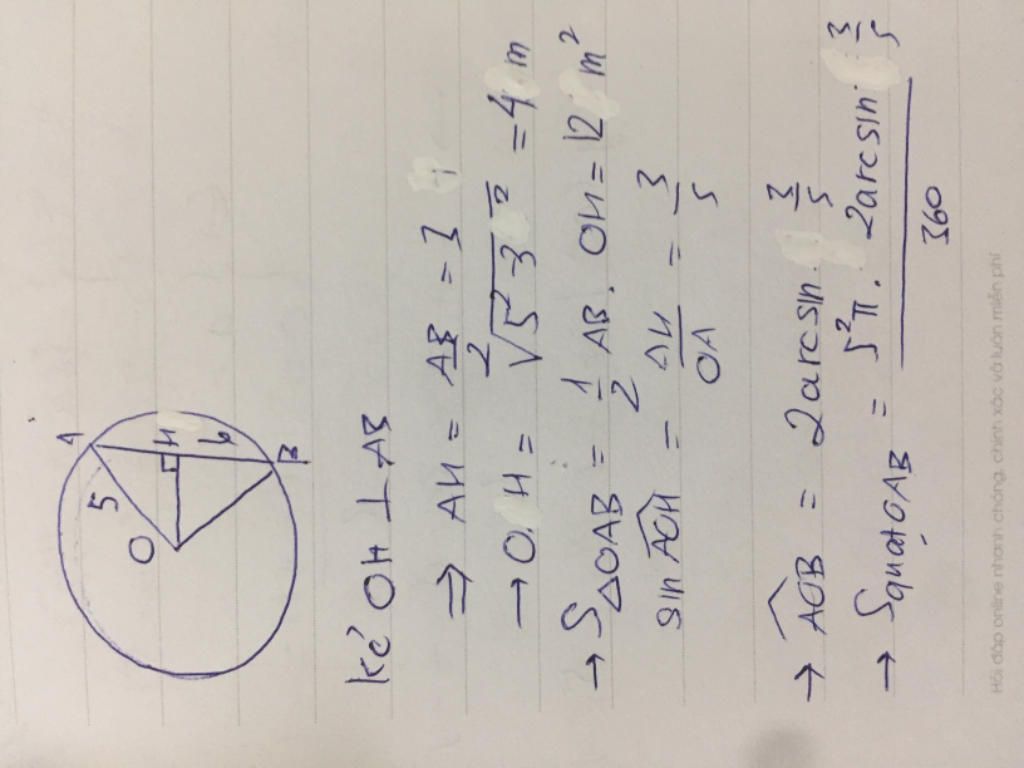 A
5
O
H
6
B
Kẻ OH ⊥ AB
⇒ AH = AB/2 = 3
→ O.H = √5² 3² = 4 m
→ S ΔOAB = 1/2 AB. OH = 12 m²
sin AOH = AH/OA = 3/5
→ AOB = 2arcsin 3/5
→ S quạt OAB = 5²π. 2arcsin 3/5 / 360
Hỏi đáp online nhanh chóng, chính xác và luôn miễn phí